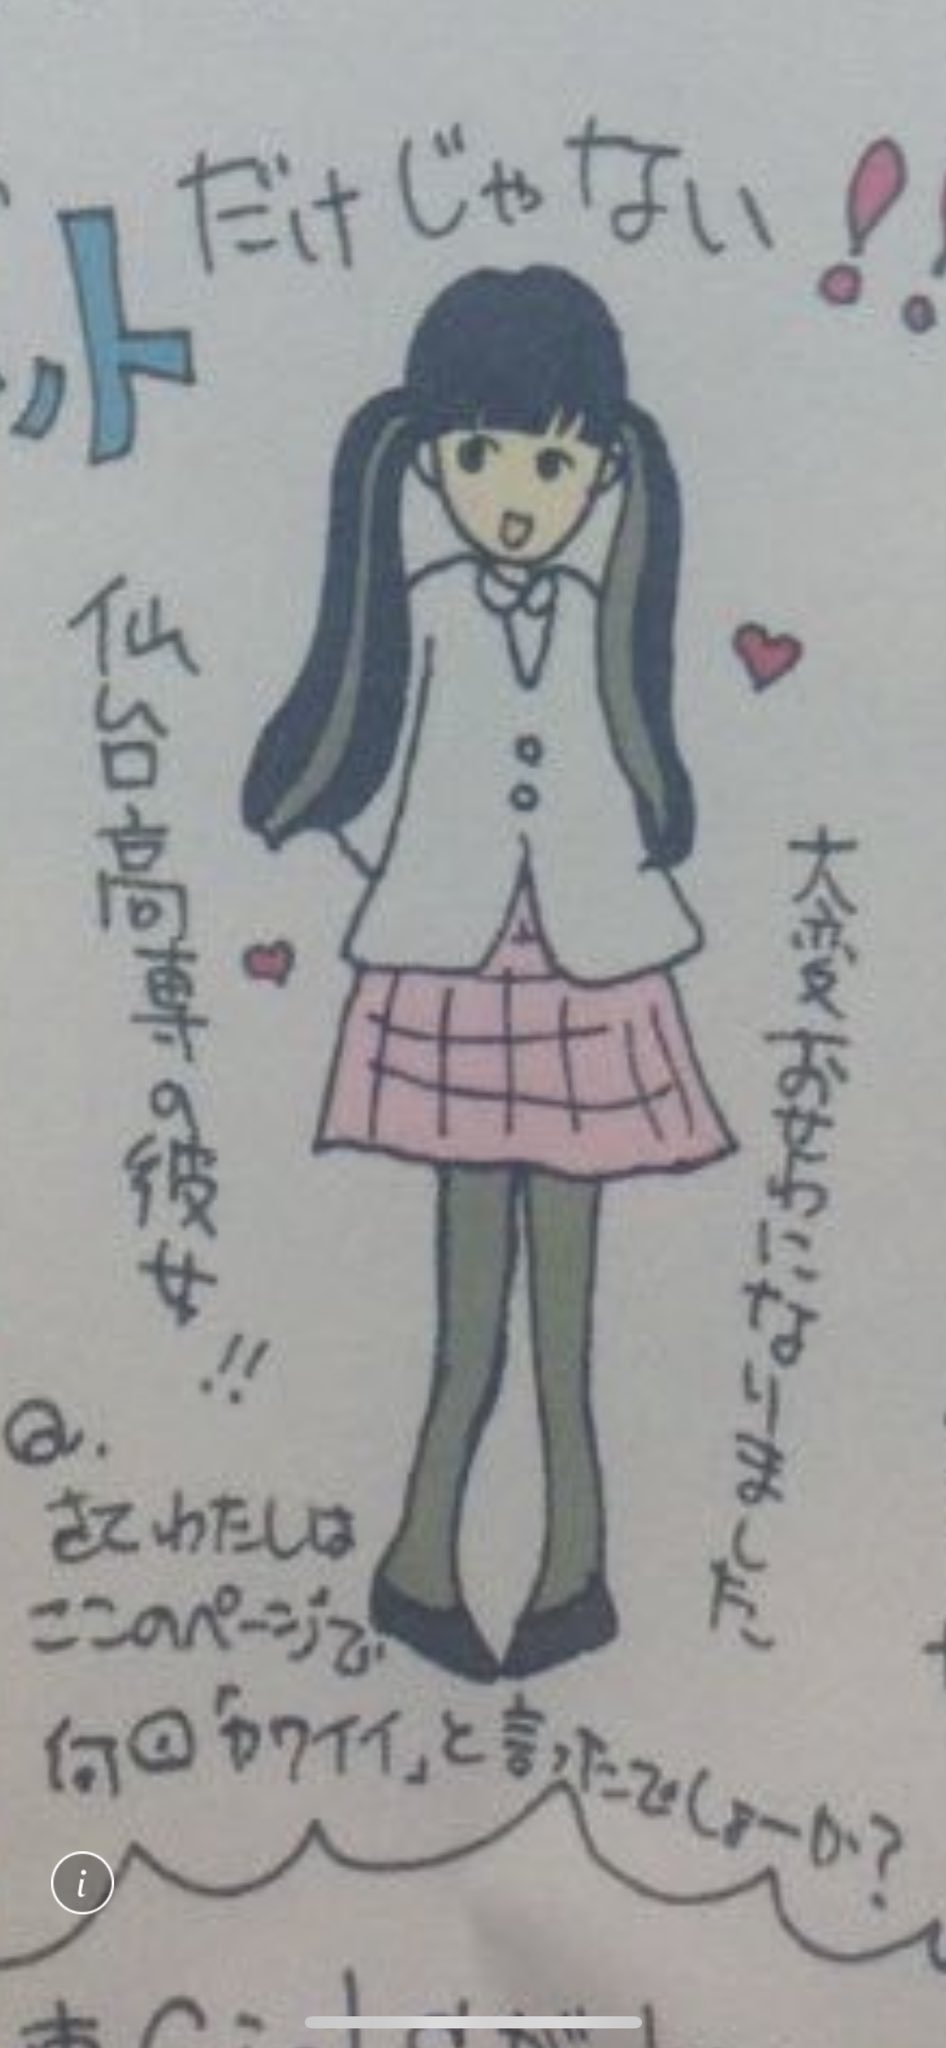 だけじゃない!!
ット
仙台高専の彼女!!
大変おせわになりました
Q.
さてわたしは
ここのページで
何回「カワイイ」と言ったでしょーか?